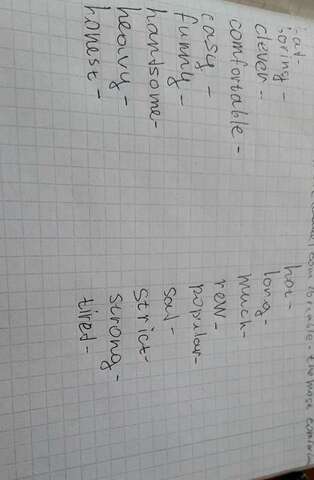 comfortable - the more
boring -
clever -
comfortable -
easy -
funny -
handsome -
heavy -
honest -
hot -
long -
much -
new -
popular -
sad -
strict -
strong -
tired -